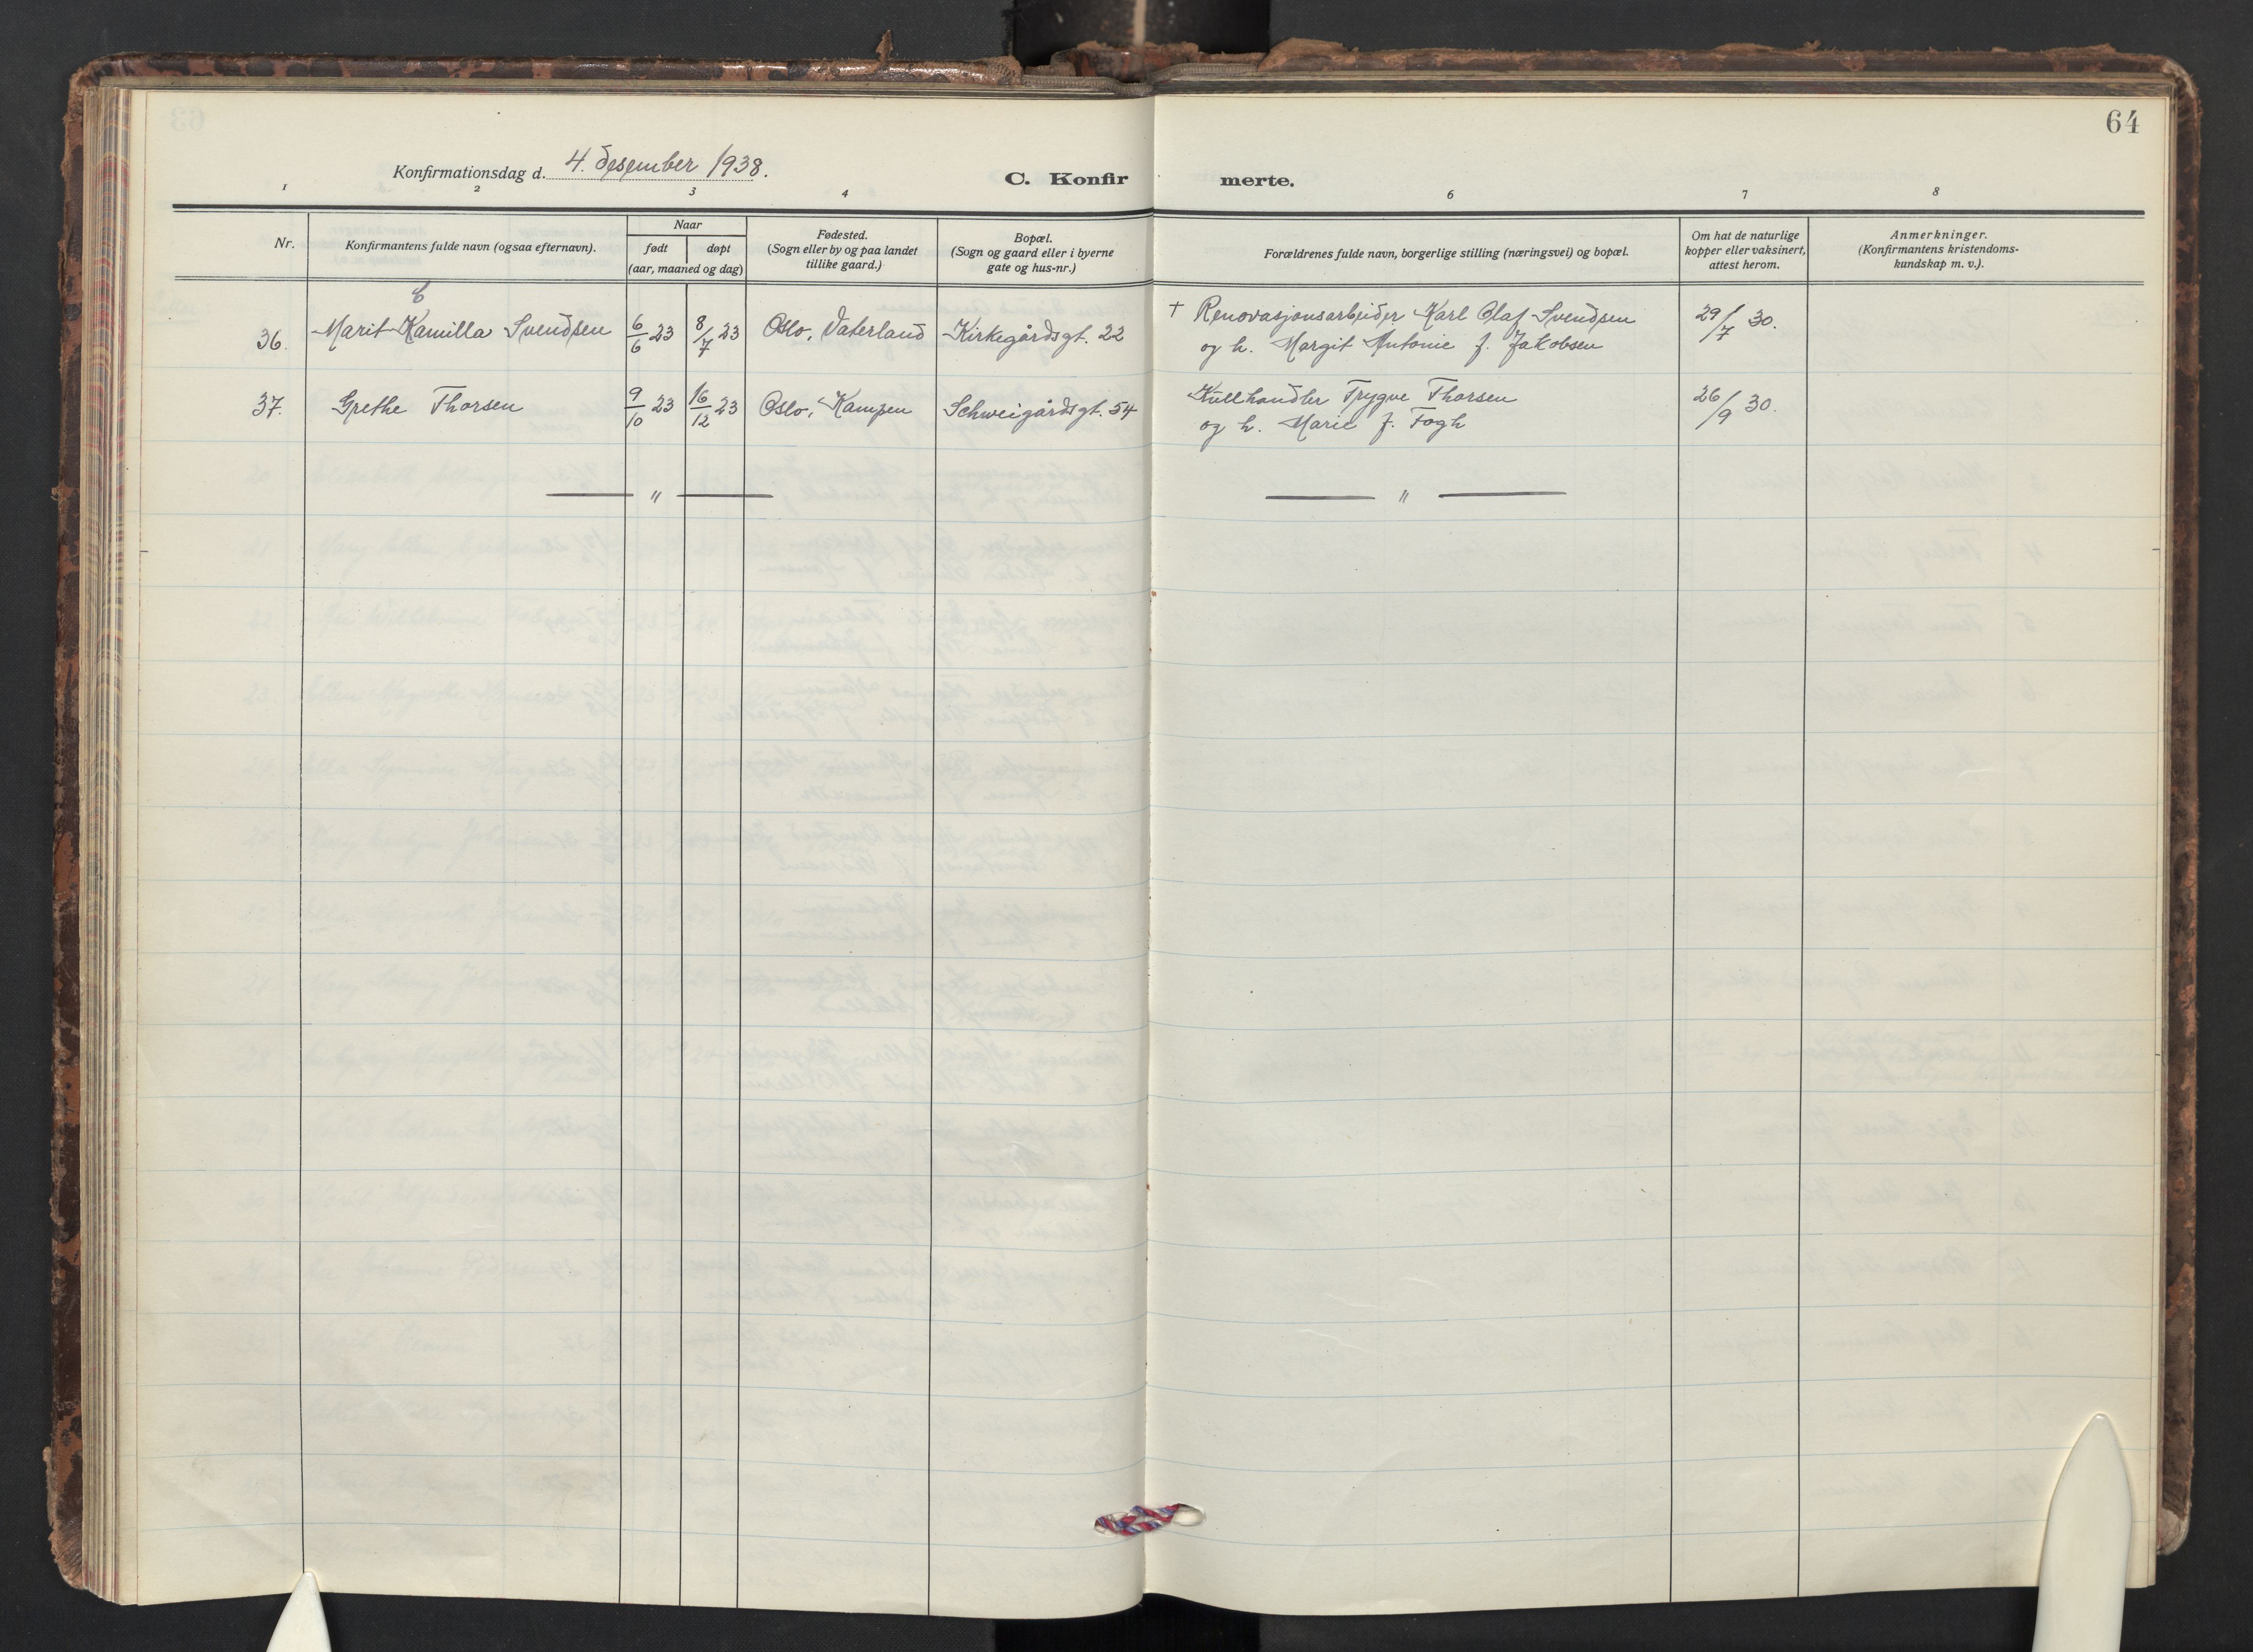 64
Konfirmationsdag d. 4. desember 1938.
C. Konfir
merte.
1 2 3 4 6 7 8
Nr.
Konfirmantens fulde navn (ogsaa efternavn).
Naar
født døpt
(aar, maaned og dag)
Fødested.
(Sogn eller by og paa landet
tillike gaard.)
Bopæl.
(Sogn og gaard eller i byerne
gate og hus-nr.)
Forældrenes fulde navn, borgerlige stilling (næringsvei) og bopæl.
Om hat de naturlige
kopper eller vaksinert,
attest herom.
Anmerkninger.
(Konfirmantens kristendoms-
kundskap m. v.).
36. Marit Kamilla Svendsen 6/6 23 8/7 23 Oslo, Vaterland Kirkegårdsgt. 22 + Renovasjonsarbeider Karl Olaf Svendsen 29/7 30.
og h. Margit Antonie f. Jakobsen
37. Grethe Thorsen 9/10 23 16/12 23 Oslo, Kampen Schweigårdsgt. 54 Kullhandler Trygve Thorsen 26/9 30.
og h. Marie f. Fogh
— " — — " —